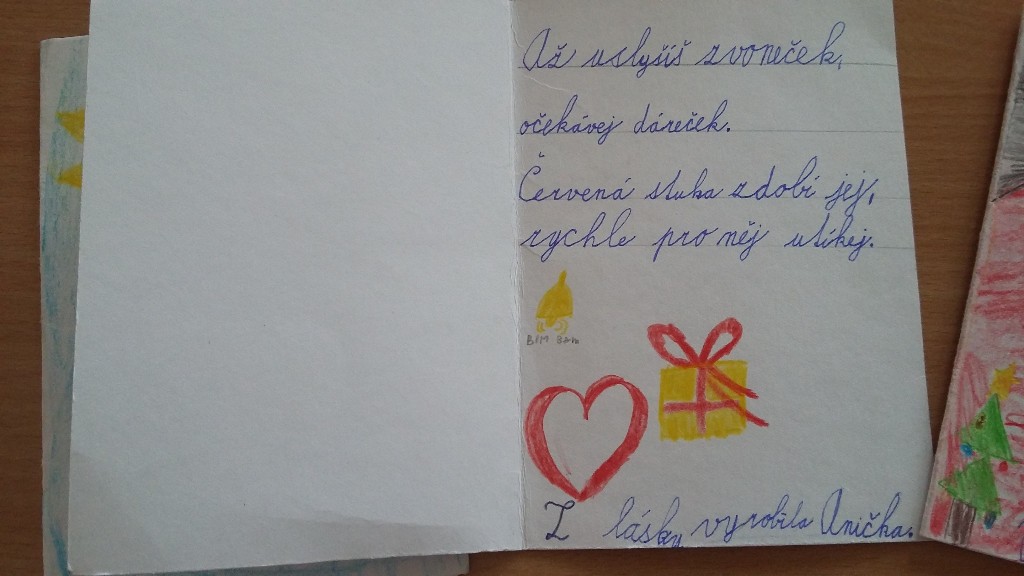 Až uslyšíš zvoneček,
očekávej dáreček.
Červená stuha zdobí jej,
rychle pro něj utíkej.
BIM BAM
Z lásky vyrobila Anička.